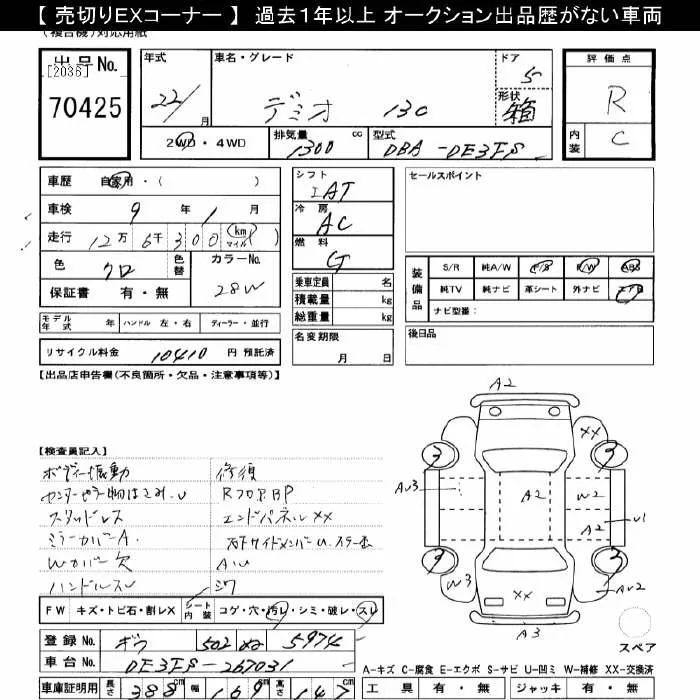 【 売切りEXコーナー 】 過去1年以上 オークション出品歴がない車両
(複合機)対応用紙
出品No.
[2036]
70425
年式
22/月
車名・グレード
デミオ 13C
ドア
5
形状
箱
評価点
R
内装
C
2WD・4WD
排気量
1300 cc
型式
DBA-DE3FS
車歴 自家用・( )
車検 9 年 1 月
走行 12万 6千 300 (km マイル)( )
色 クロ 色替
カラーNo.
28W
保証書 有・無
モデル年式 年 ハンドル 左・右 ディーラー・並行
リサイクル料金 10410 円 預託済
シフト
IAT
冷房
AC
燃料
G
乗車定員 名
積載量 kg
総重量 kg
名変期限
月 日
セールスポイント
装備品
S/R 純A/W P/S P/W ABS
純TV 純ナビ 革シート 外ナビ
ナビ型番:
後日品
【出品店申告欄(不良箇所・欠品・注意事項等)】
【検査員記入】
ボディー振動
スタッドレス
ミラーカバーA
Wカバー欠
ハンドルスレ
修復
エンドパネルXX
AU
シワ
FW キズ・トビ石・割レX シート内装 コゲ・穴・汚レ・シミ・破レ・スレ
登録No. ギフ 502 5974
車台No. DE3FS-267031
車庫証明用 長さ 388 cm 幅 169 cm 高さ 147 cm
A2
XX
3
3
AU3
A2
W2
A2
U1
3
3
W3
XX
AU2
A3
スペア
A-キズ C-腐食 E-エクボ S-サビ U-凹ミ W-補修 XX-交換済
工具 有・無 ジャッキ 有・無